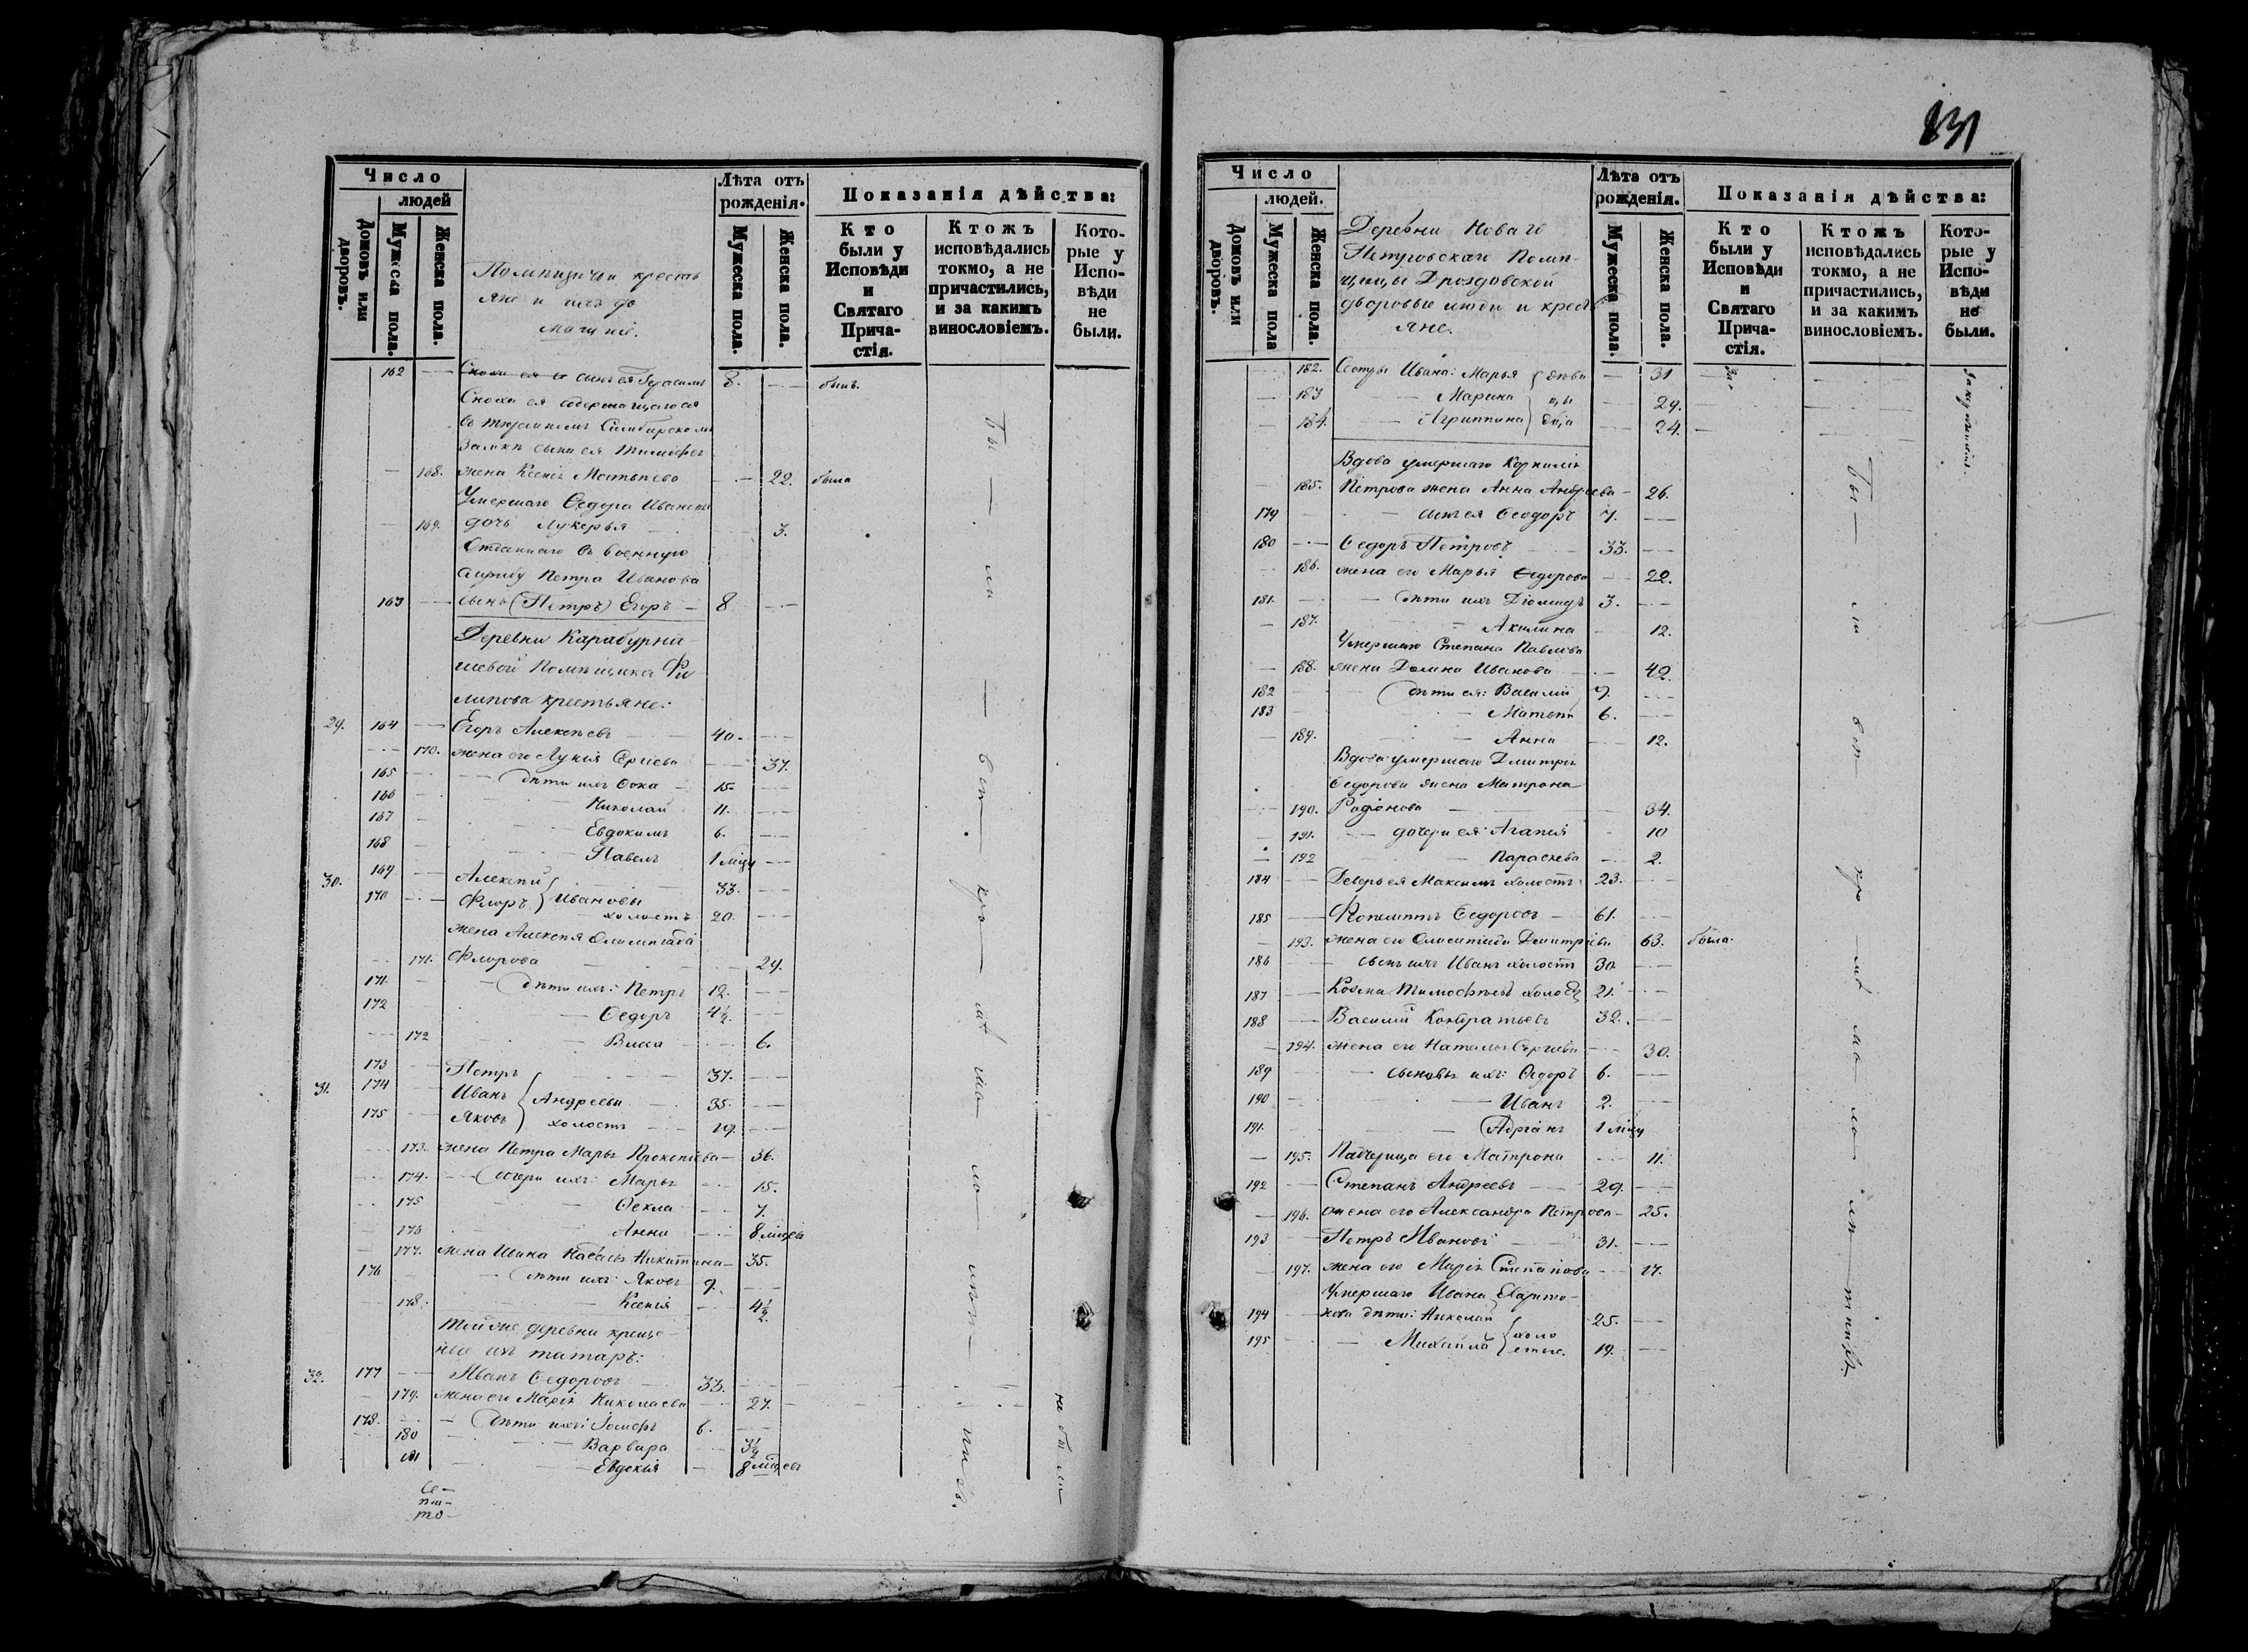 Число
людей
Домовъ или дворовъ.
Мужеска пола.
Женска пола.
Помпщичьи кресть
яне и ихъ до
машніе.
Лѣта отъ рожденія.
Мужеска пола.
Женска пола.
Показанія дѣйства:
Кто были у Исповѣди и Святаго Прича-стія.
Ктожъ исповѣдались токмо, а не причастились, и за какимъ винословіемъ.
Кото-рые у Испо-вѣди не были.
162 сынъ ея Герасимъ 8. былъ.
Сноха ея содержащагося
въ Симбирскомъ
Замкѣ сына ея Тимофея
168. жена Ксенія Матвѣева 22. была
Умершаго Ѳедора Иванова
169. дочь Лукерья 3.
Отданнаго въ военную
службу Петра Иванова
163 сынъ (Петръ) Егоръ 8
Деревни Карабурна
шевой Помпщика Фи
липова крестьяне:
29. 164 Егоръ Алексѣевъ 40.
170. жена его Лукія Сергіева 37.
165 дѣти ихъ Фока 15.
166 Николай 11.
167 Евдокимъ 6.
168 Павелъ 1 мѣсц
30. 169 Алексѣй 33.
170 Флоръ } Ивановы холостъ 20.
жена Алексѣя Олимпіада
171. Флорова 29.
171. дѣти ихъ: Петръ 12.
172 Ѳедоръ 4½.
172 Васса 6.
173 Петръ 37.
31. 174 Иванъ { Андреевы 35.
175 Яковъ } холостъ 19.
173. жена Петра Марья Прокопіева 36.
174. дочери ихъ: Марья 15.
175 Ѳекла 7.
176 Анна 8 мѣсцевъ
177. жена Ивана Никитина 35.
176 дѣти ихъ: Яковъ 9.
178. Ксенія 4½
Тойже деревни креще-
ные изъ татаръ:
32. 177 Иванъ Ѳедоровъ 33.
179. жена его Марія Николаева 27.
178. дѣти ихъ: Іосифъ 6.
180 Варвара 3½
181 Евдокія 8 мѣсцевъ
Се-
по-
то-
не были
831
Число
людей.
Домовъ или дворовъ.
Мужеска пола
Женска пола.
Деревни Новаго
Петровскаго Помп-
щицы Дроздовской
дворовые люди и кресть
яне.
Лѣта отъ рожденія.
Мужеска пола.
Женска пола.
Показанія дѣйства:
Кто были у Исповѣди и Святаго Прича-стія.
Ктожъ исповѣдались токмо, а не причастились, и за какимъ винословіемъ.
Кото-рые у Испо-вѣди не были.
182. Сестры Ивана: Марья { дѣви 31
183 Марина цы 29.
184. Агриппина } 24.
Вдова умершаго Корнилія
185. Петрова жена Анна Андреева 26.
179 сынъ ея Ѳеодоръ 7.
180 Ѳедоръ Петровъ 33.
186. жена его Марья Ѳедорова 22.
181. дѣти ихъ Діомидъ 3.
187. Акилина 12.
Умершаго Степана Павлова
188. жена Домна Иванова 42.
182 дѣти ея: Василій 9.
183 Матвѣй 6.
189. Анна 12.
Вдова умершаго Дмитрія
Ѳедорова жена Матрона
190. Родіонова 34.
191. дочери ея: Агапія 10
192 Параскева 2.
184 Деверь ея Максимъ холостъ 23.
185 Ѳедоровъ 61.
193. жена его Олимпіада Дмитріева 63. была.
186 сынъ ихъ Иванъ холостъ 30.
187 Козма Тимофѣевъ 21.
188 Василій Кондратьевъ 32.
194. жена его Наталья Сергіева 30.
189 сыновья ихъ: Ѳедоръ 6.
190 Иванъ 2.
191. Адріанъ 1 мѣсц
195. Падчерица его Матрона 11.
192 Степанъ Андреевъ 29.
196. жена его Александра Петрова 25.
193 Петръ Ивановъ 31.
197. жена его Марія Степанова 27.
Умершаго Ивана Харито-
194 нова дѣти: Николай 25.
195 Михаилъ { холо стые. 19.